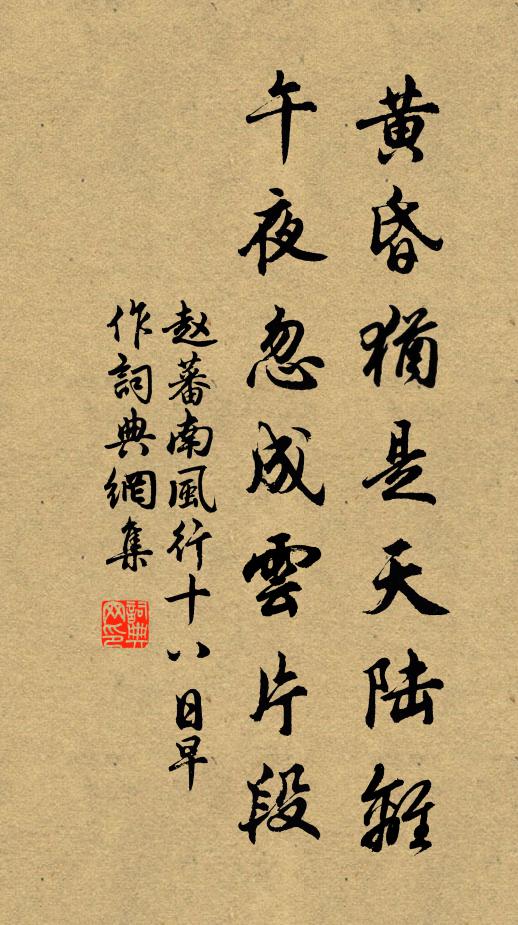 黄昏猶是天陆離
午夜忽成雲片段
赵蕃南風行十八日早
作詞典網集
詞典网印